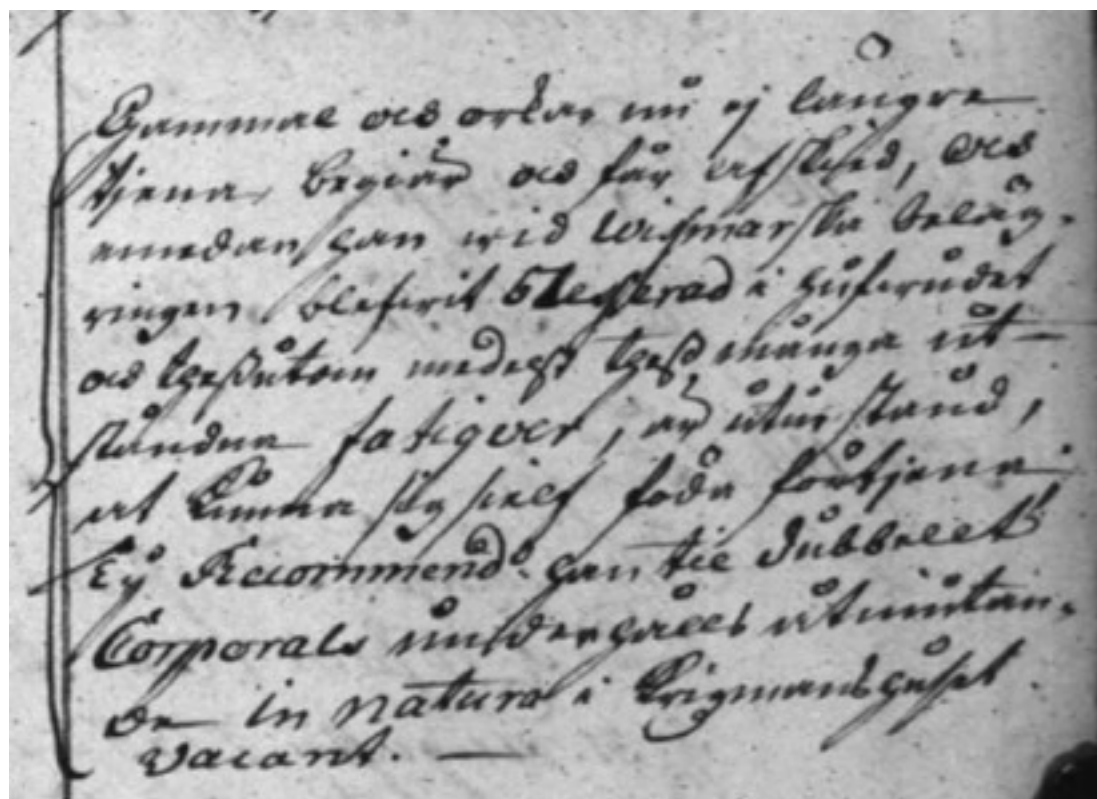 Gammal och orkar nu ej längre
tjena, begiär och får afskied, och
emedan han wid Wismarska beläg-
ringen blefwit blesserad i hufwudet
och thessutom medelst thess många ut-
ståndne fatiquer, är utur stånd,
at kunna sig sielf föda förtjena
Ty Recommend: han til dubbelt
Corporals underhålls åtniutan-
de in natura i Krigmanshuset
Vacant. —